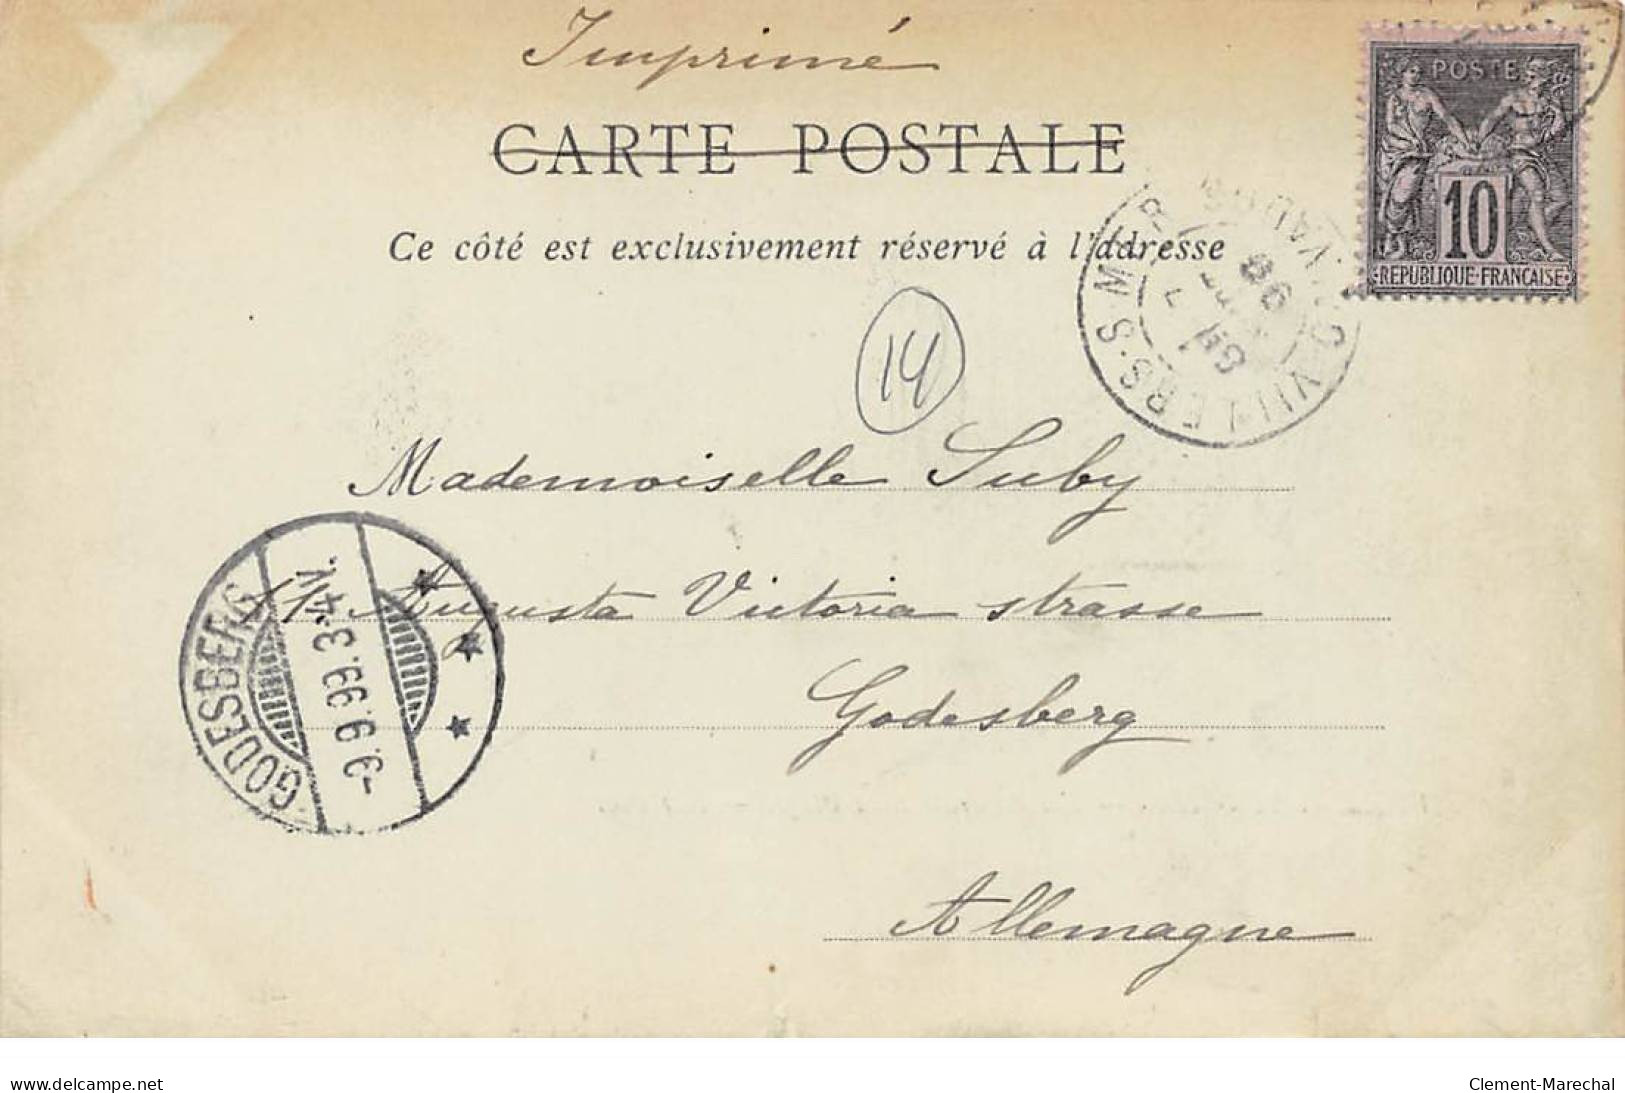 Imprimé
CARTE POSTALE
Ce côté est exclusivement réservé à l'addresse
POSTE
10
REPUBLIQUE FRANÇAISE
VILLERS-S-MER
CALVADOS
14
Mademoiselle Suby
11 Augusta Victoria strasse
Godesberg
Allemagne
GODESBERG
9.9.99.3-4N.
www.delcampe.net
Clement-Marechal